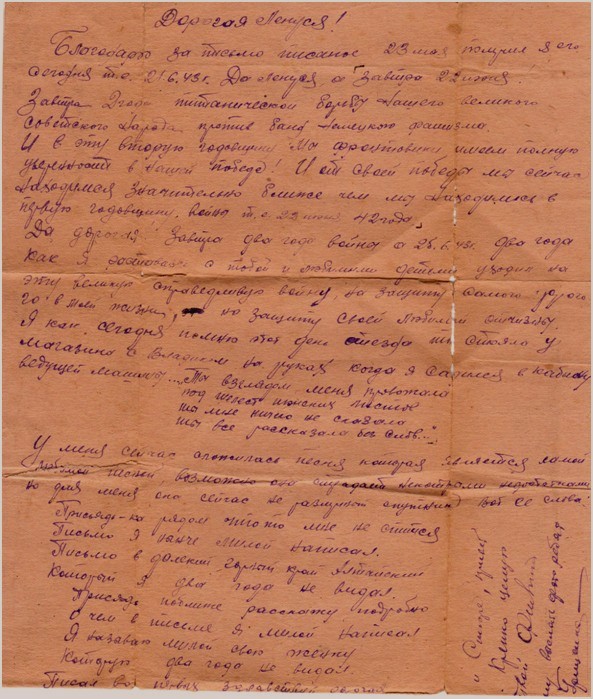 Дорогая Ленуся!
Благодарю за письмо писаное 23 мая получил я его
сегодня т.е. 21.6.43г. Да Ленуся а завтра 22 июня!
Завтра 2 года титанической борьбы нашего великого
советского народа против банд немецкого фашизма.
И в эту вторую годовщину мы фронтовики имеем полную
уверенность в нашей победе! И от своей победы мы сейчас
находимся значительно ближе чем мы находились в
первую годовщину войны т.е. 22 июня 42 года.
Да дорогая завтра два года войны а 25.6.43г. два года
как я расстовался с тобой и любимыми детьми уходил на
эту великую справедливую войну, на защиту самого дорого
го в моей жизни, на защиту своей любимой отчизны.
Я как сегодня помню этот день отъезда ты стояла у
магазина с Владиком на руках когда я садился в кабину
ведущей машины. ... Ты взглядом меня провожала
под шелест июньских листов
ты мне ничего не сказала
ты все рассказала без слов..."
У меня сейчас сложилась песня которая является самой
любимой песней, возможно она страдает некоторыми недостатками
но для меня она сейчас не разлучный спутник! Вот ее слова:
Присядь-ка рядом что-то мне не спится
Письмо я нынче милой написал.
Письмо в далекий горный край Алтайский
Который я два года не видал.
Присядь поближе расскажу подробно
О чем в письме я милой написал
Я называю милой свою женку
Которую два года не видал
Писал
Крепко целую
твой